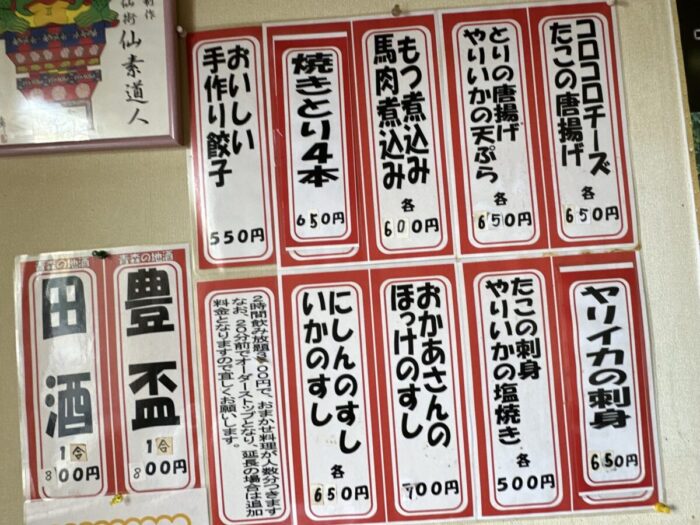 制作
仙術 仙素道人
コロコロチーズ
たこの唐揚げ
各
650円
とりの唐揚げ
やりいかの天ぷら
各
650円
もつ煮込み
馬肉煮込み
各
600円
焼きとり4本
650円
おいしい
手作り餃子
550円
ヤリイカの刺身
650円
たこの刺身
やりいかの塩焼き
各
500円
おかあさんの
ほっけのすし
700円
にしんのすし
いかのすし
各
650円
2時間飲み放題3000円で、おまかせ料理が人数分つきます
なお、20分前でオーダーストップとなり、延長の場合は追加
料金となりますので宜しくお願いします。
青森の地酒
豊盃
1合
800円
青森の地酒
田酒
1合
800円